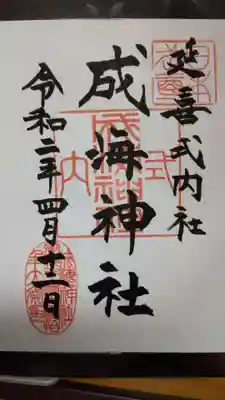 延喜式内社
成海神社
令和二年四月十二日